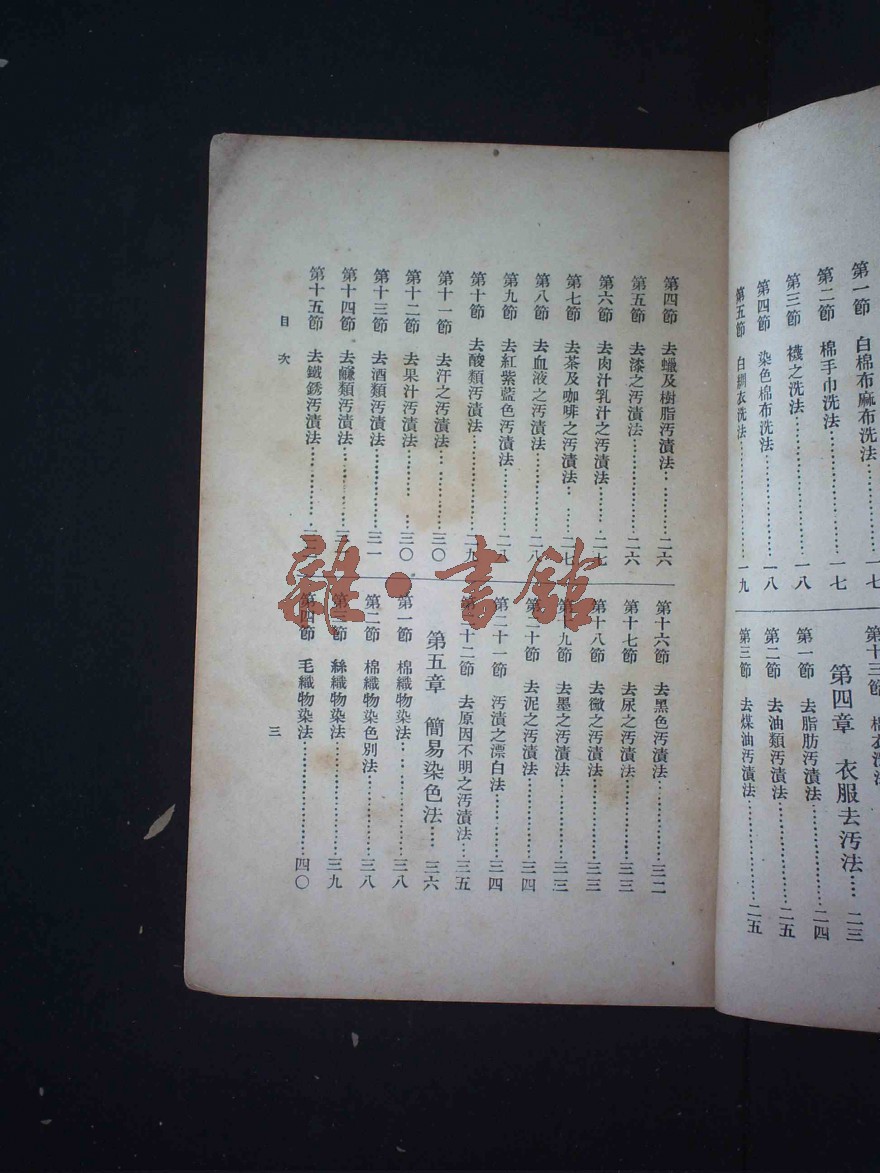 第一節 白棉布麻布洗法……一七
第二節 棉手巾洗法……一七
第三節 襪之洗法……一八
第四節 染色棉布洗法……一八
第五節 白綢衣洗法……一九
第十三節 棉衣洗法
第四章 衣服去汚法……二三
第一節 去脂肪汚漬法……二四
第二節 去油類汚漬法……二五
第三節 去煤油汚漬法……二五
第四節 去蠟及樹脂汚漬法……二六
第五節 去漆之汚漬法……二六
第六節 去肉汁乳汁之汚漬法……二七
第七節 去茶及咖啡之汚漬法……二七
第八節 去血液之汚漬法……二八
第九節 去紅紫藍色汚漬法……二八
第十節 去酸類汚漬法……二九
第十一節 去汗之汚漬法……三〇
第十二節 去果汁汚漬法……三〇
第十三節 去酒類汚漬法……三一
第十四節 去鹼類汚漬法……
第十五節 去鐵銹汚漬法……
第十六節 去黑色汚漬法……三二
第十七節 去尿之汚漬法……三三
第十八節 去黴之汚漬法……三三
第十九節 去墨之汚漬法……三三
第二十節 去泥之汚漬法……三四
第二十一節 汚漬之漂白法……三四
第二十二節 去原因不明之汚漬法……三五
第五章 簡易染色法……三六
第一節 棉織物染法……三八
第二節 棉織物染色別法……三八
第三節 絲織物染法……三九
第四節 毛織物染法……四〇
目次
三
雜·書館